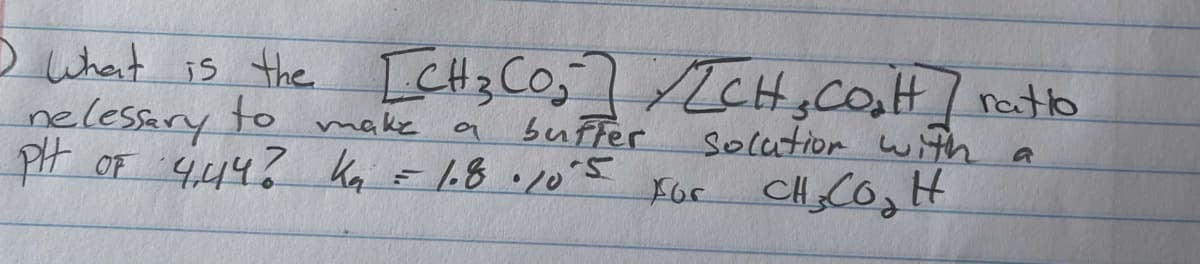 What is the [CH₃CO₂⁻] / [CH₃CO₂H] ratio
nelessary to make a buffer solution with a
pH OF 4.44? Ka = 1.8 · 10⁻⁵ For CH₃CO₂H